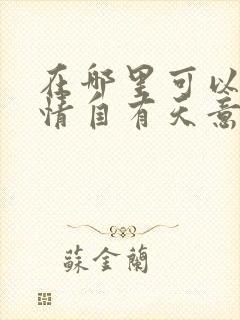 在哪里可以
情自有天意
蘇金蘭